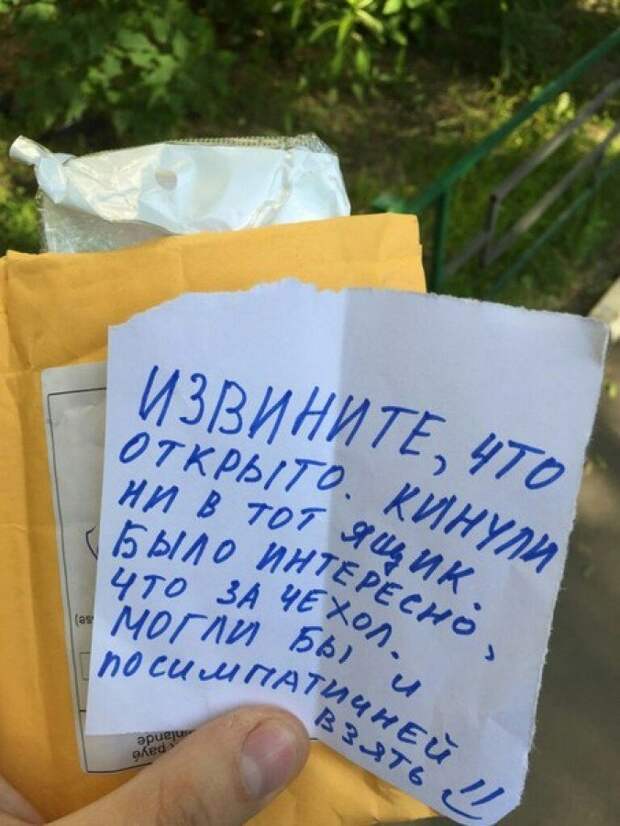 ИЗВИНИТЕ, ЧТО
ОТКРЫТО. КИНУЛИ
НИ В ТОТ ЯЩИК.
БЫЛО ИНТЕРЕСНО,
ЧТО ЗА ЧЕХОЛ.
МОГЛИ БЫ И
ПОСИМПАТИЧНЕЙ
ВЗЯТЬ !!